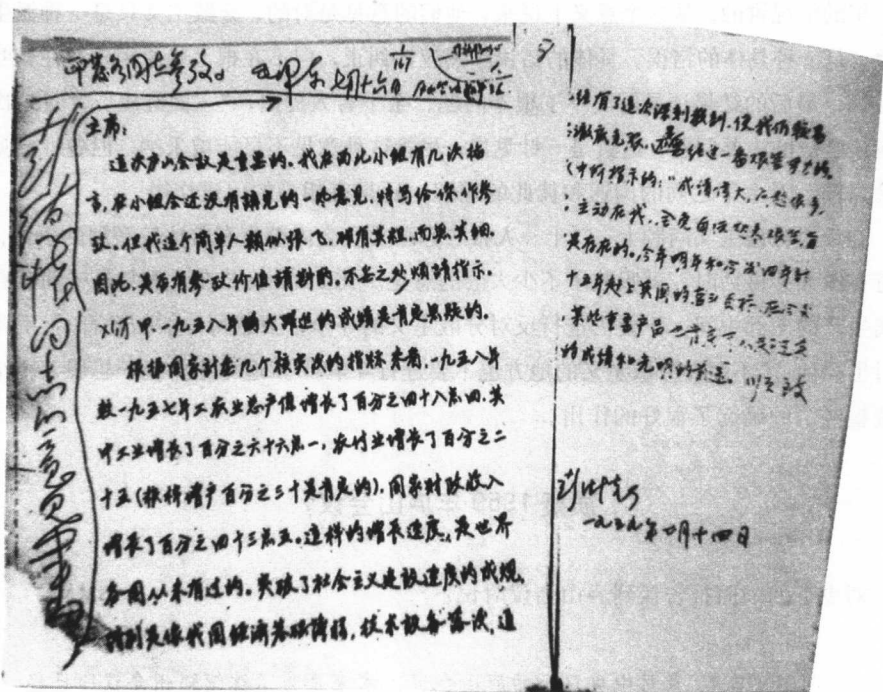 印发各同志参考。 毛泽东 七月十六日
彭德怀同志的意见书
主席：
这次庐山会议是重要的。我在西北小组有几次插
言，在小组会还没有讲完的一些意见，特写给你作参
考。但我这个简单人类似张飞，确有其粗，而无其细。
因此，是否有参考价值請斟酌。不妥之处烦請指示。
甲、一九五八年的大跃进的成绩是肯定无疑的。
根据国家计委几个核实后的指标来看，一九五八年
较一九五七年工农业总产值增长了百分之四十八点四，其
中工业增长了百分之六十六点一，农付业增长了百分之二
十五（粮棉增产百分之三十是肯定的），国家财政收入
增长了百分之四十三点五。这样的增长速度，是世界
各国从未有过的。突破了社会主义建设速度的成规，
特别是像我国经济基础薄弱，技术设备落后，通
经有了这次深刻教训，
中所指示的："成绩伟大，问题很多，
是存在的。今年明年和今后四年计
十五年赶上英国的
某些重要产品
的成绩和光明的前途。 以至 敬
彭德怀
一九五九年七月十四日